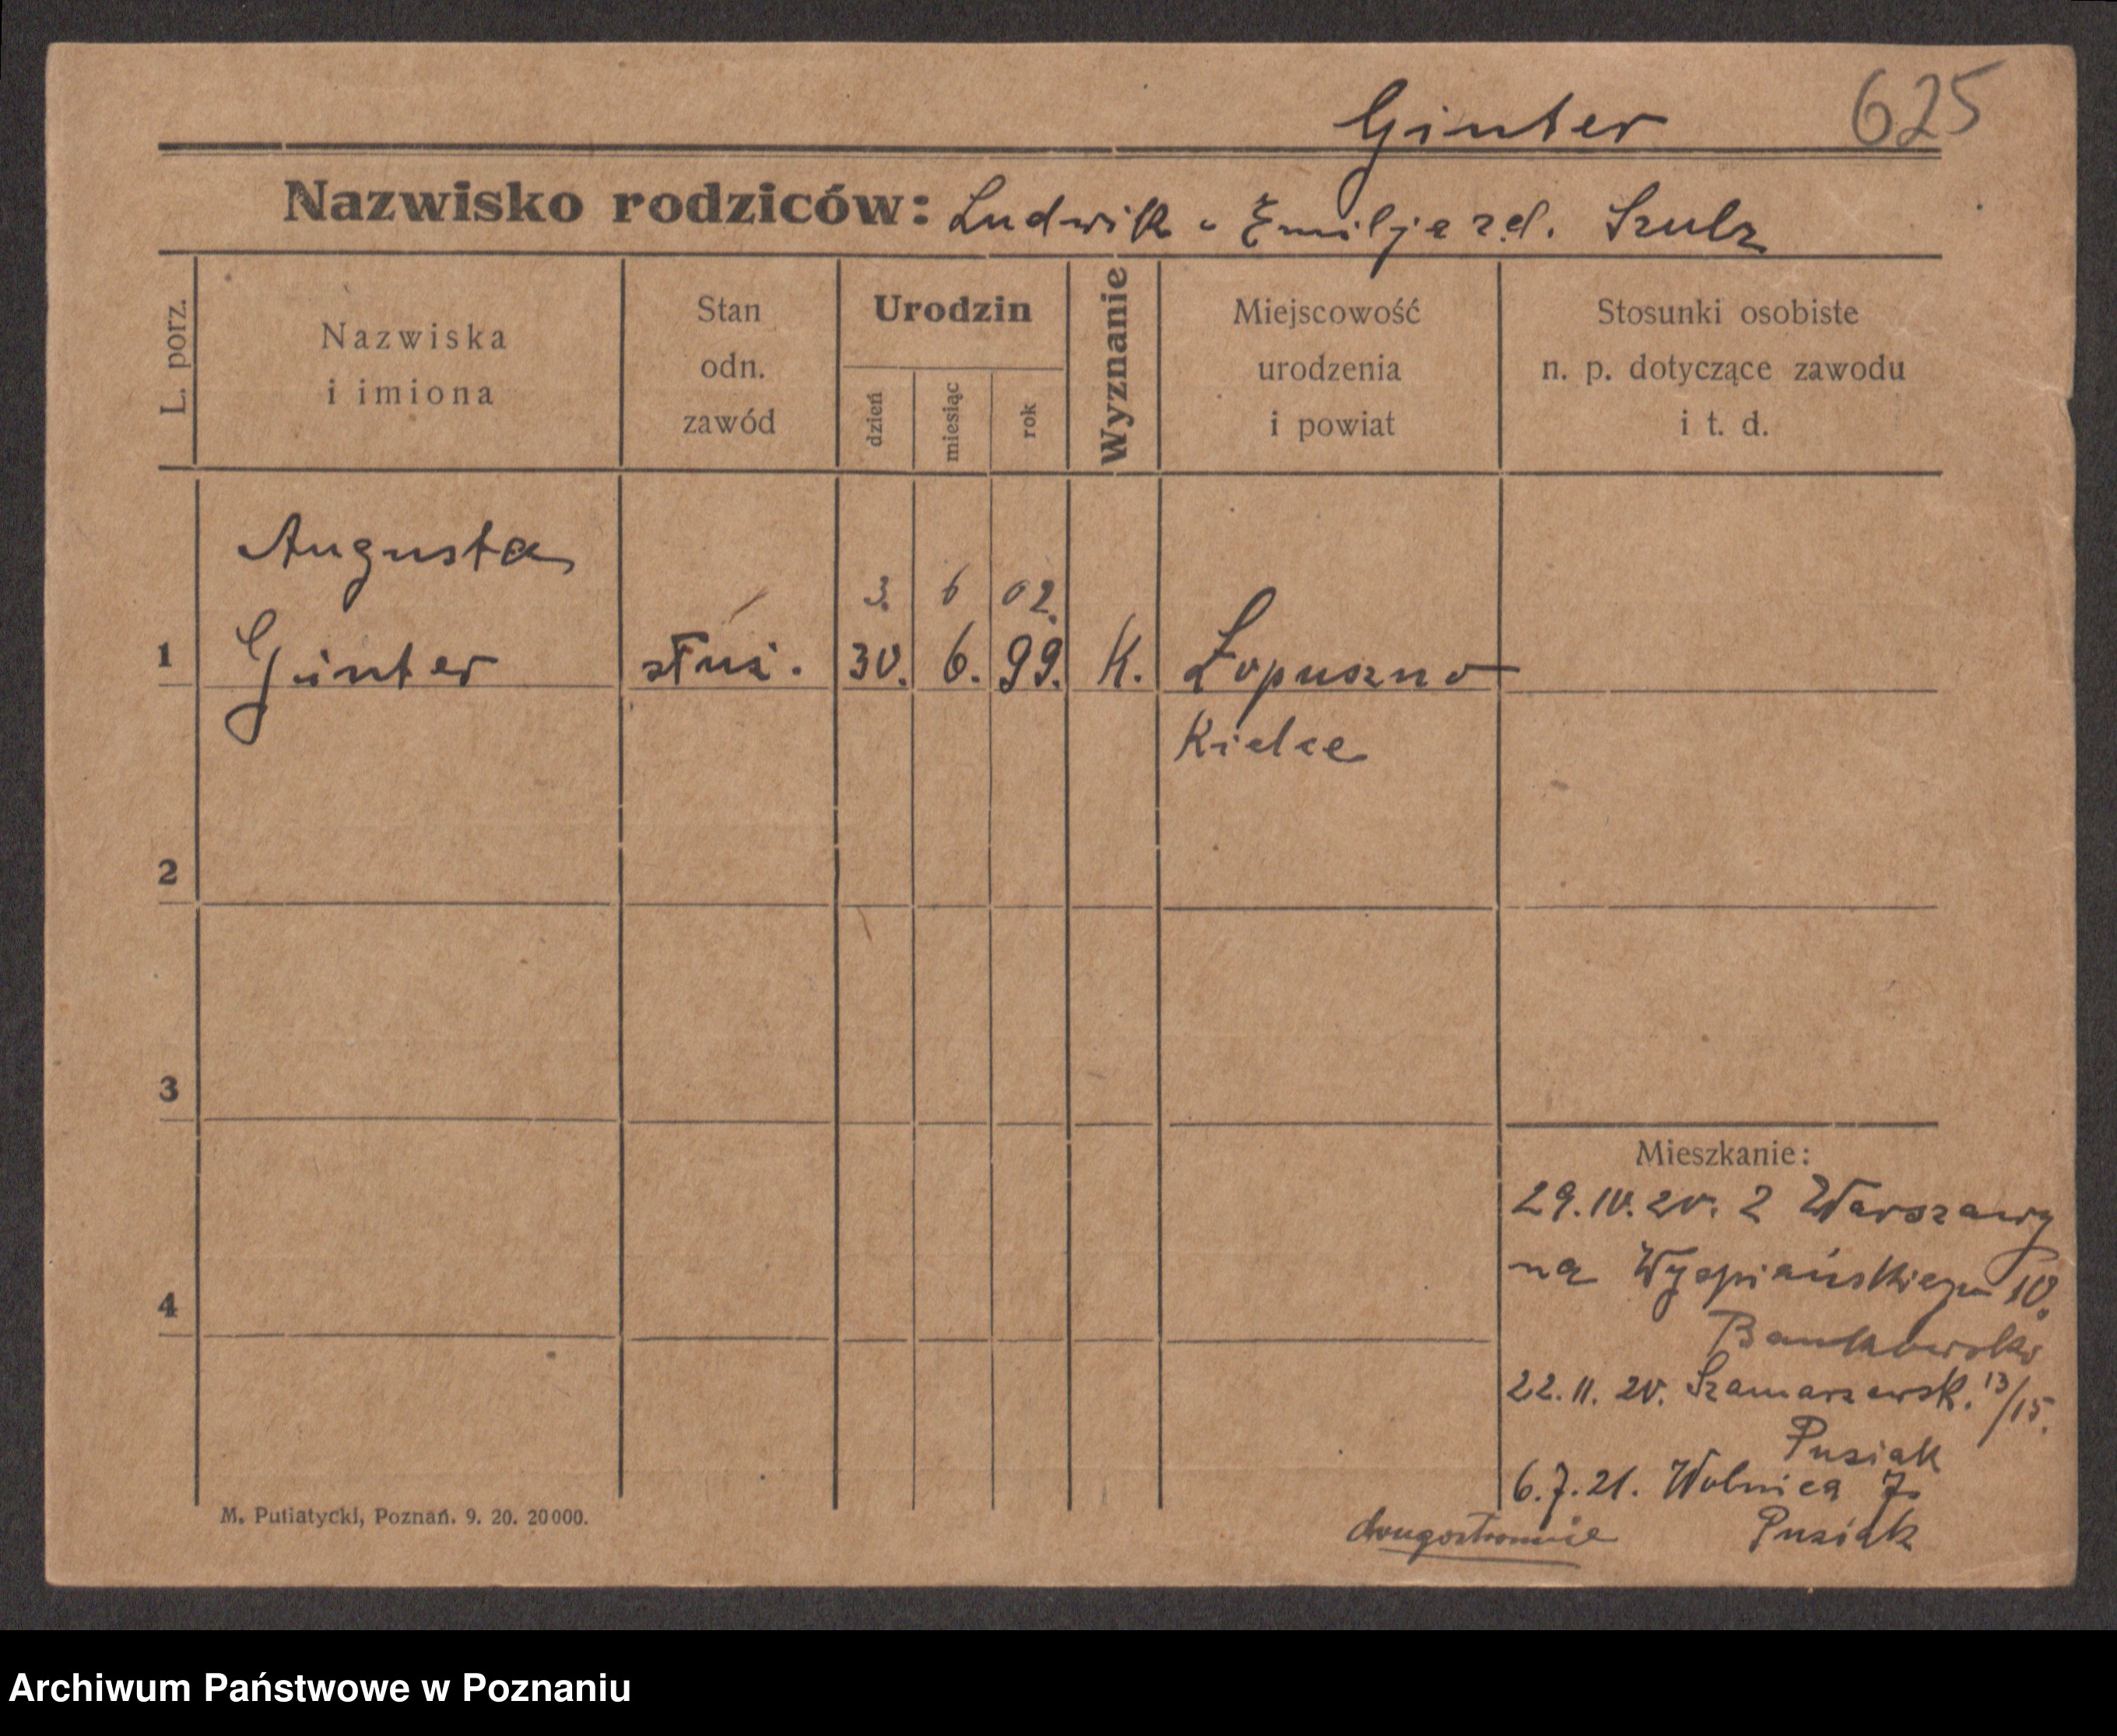 Ginter 625
Nazwisko rodziców: Ludwik i Emilja zd. Szulz
L. porz.
Nazwiska
i imiona
Stan
odn.
zawód
Urodzin
dzień
miesiąc
rok
Wyznanie
Miejscowość
urodzenia
i powiat
Stosunki osobiste
n. p. dotyczące zawodu
i t. d.
Augusta
3. 6 02.
1 Ginter służ. 30. 6. 99. K. Łopuszno
Kielce
2
3
4
Mieszkanie:
29.IV.20. z Warszawy
na Wyspiańskiego 10.
22.11.20. Szamarzewsk. 13/15.
Pusiak
6.7.21. Wolnica 7.
Pusiak
drugostronnie
M. Putiatycki, Poznań. 9. 20. 20000.
Archiwum Państwowe w Poznaniu